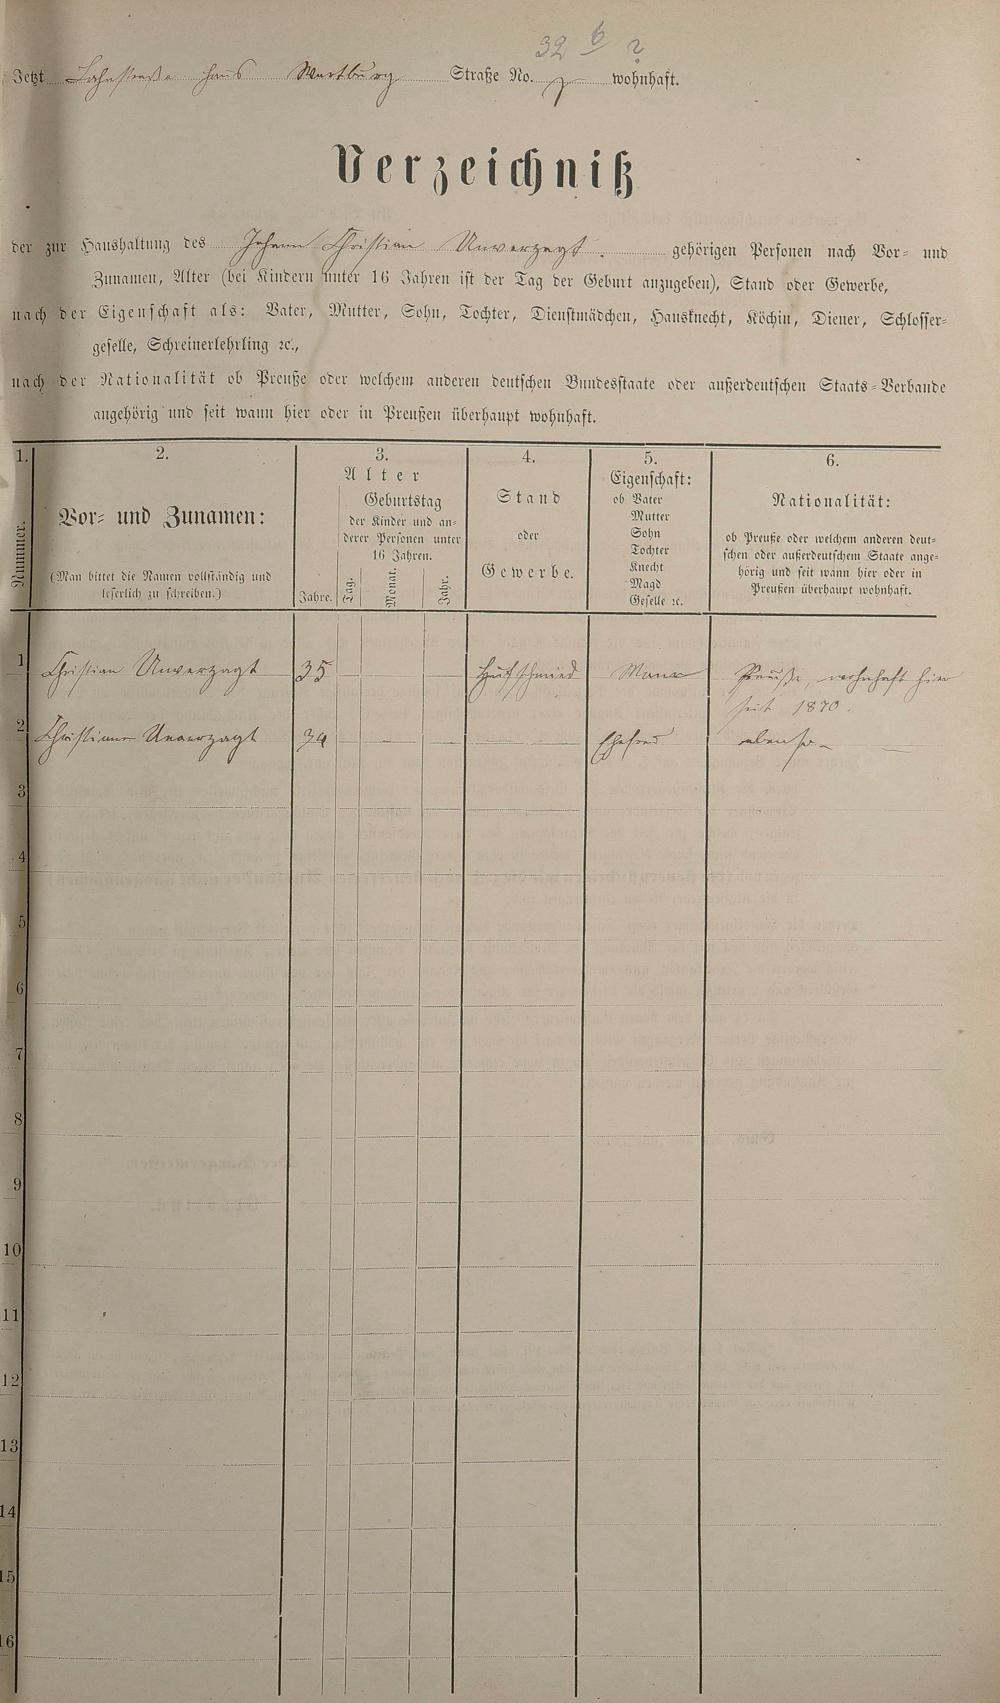 32 b ?
Jetzt Lahnstraße Haus Wartburg Straße No. 7 wohnhaft.
Verzeichniß
der zur Haushaltung des Johann Christian Unverzagt. gehörigen Personen nach Vor- und
Zunamen, Alter (bei Kindern unter 16 Jahren ist der Tag der Geburt anzugeben), Stand oder Gewerbe,
nach der Eigenschaft als: Vater, Mutter, Sohn, Tochter, Dienstmädchen, Hausknecht, Köchin, Diener, Schlosser-
geselle, Schreinerlehrling ꝛc.,
nach der Nationalität ob Preuße oder welchem anderen deutschen Bundesstaate oder außerdeutschen Staats-Verbande
angehörig und seit wann hier oder in Preußen überhaupt wohnhaft.
1. 2. 3. 4. 5. 6.
Nummer.
Vor- und Zunamen:
(Man bittet die Namen vollständig und
leserlich zu schreiben.)
Alter
Jahre.
Geburtstag
der Kinder und an-
derer Personen unter
16 Jahren.
Tag. Monat. Jahr.
Stand
oder
Gewerbe.
Eigenschaft:
ob Vater
Mutter
Sohn
Tochter
Knecht
Magd
Geselle ꝛc.
Nationalität:
ob Preuße oder welchem anderen deut-
schen oder außerdeutschem Staate ange-
hörig und seit wann hier oder in
Preußen überhaupt wohnhaft.
1 Christian Unverzagt 35 Hufschmied Mann Preuße, wohnhaft hier
seit 1870.
2 Christiane Unverzagt 34 — — — — Ehefrau ebenso — —
3
4
5
6
7
8
9
10
11
12
13
14
15
16